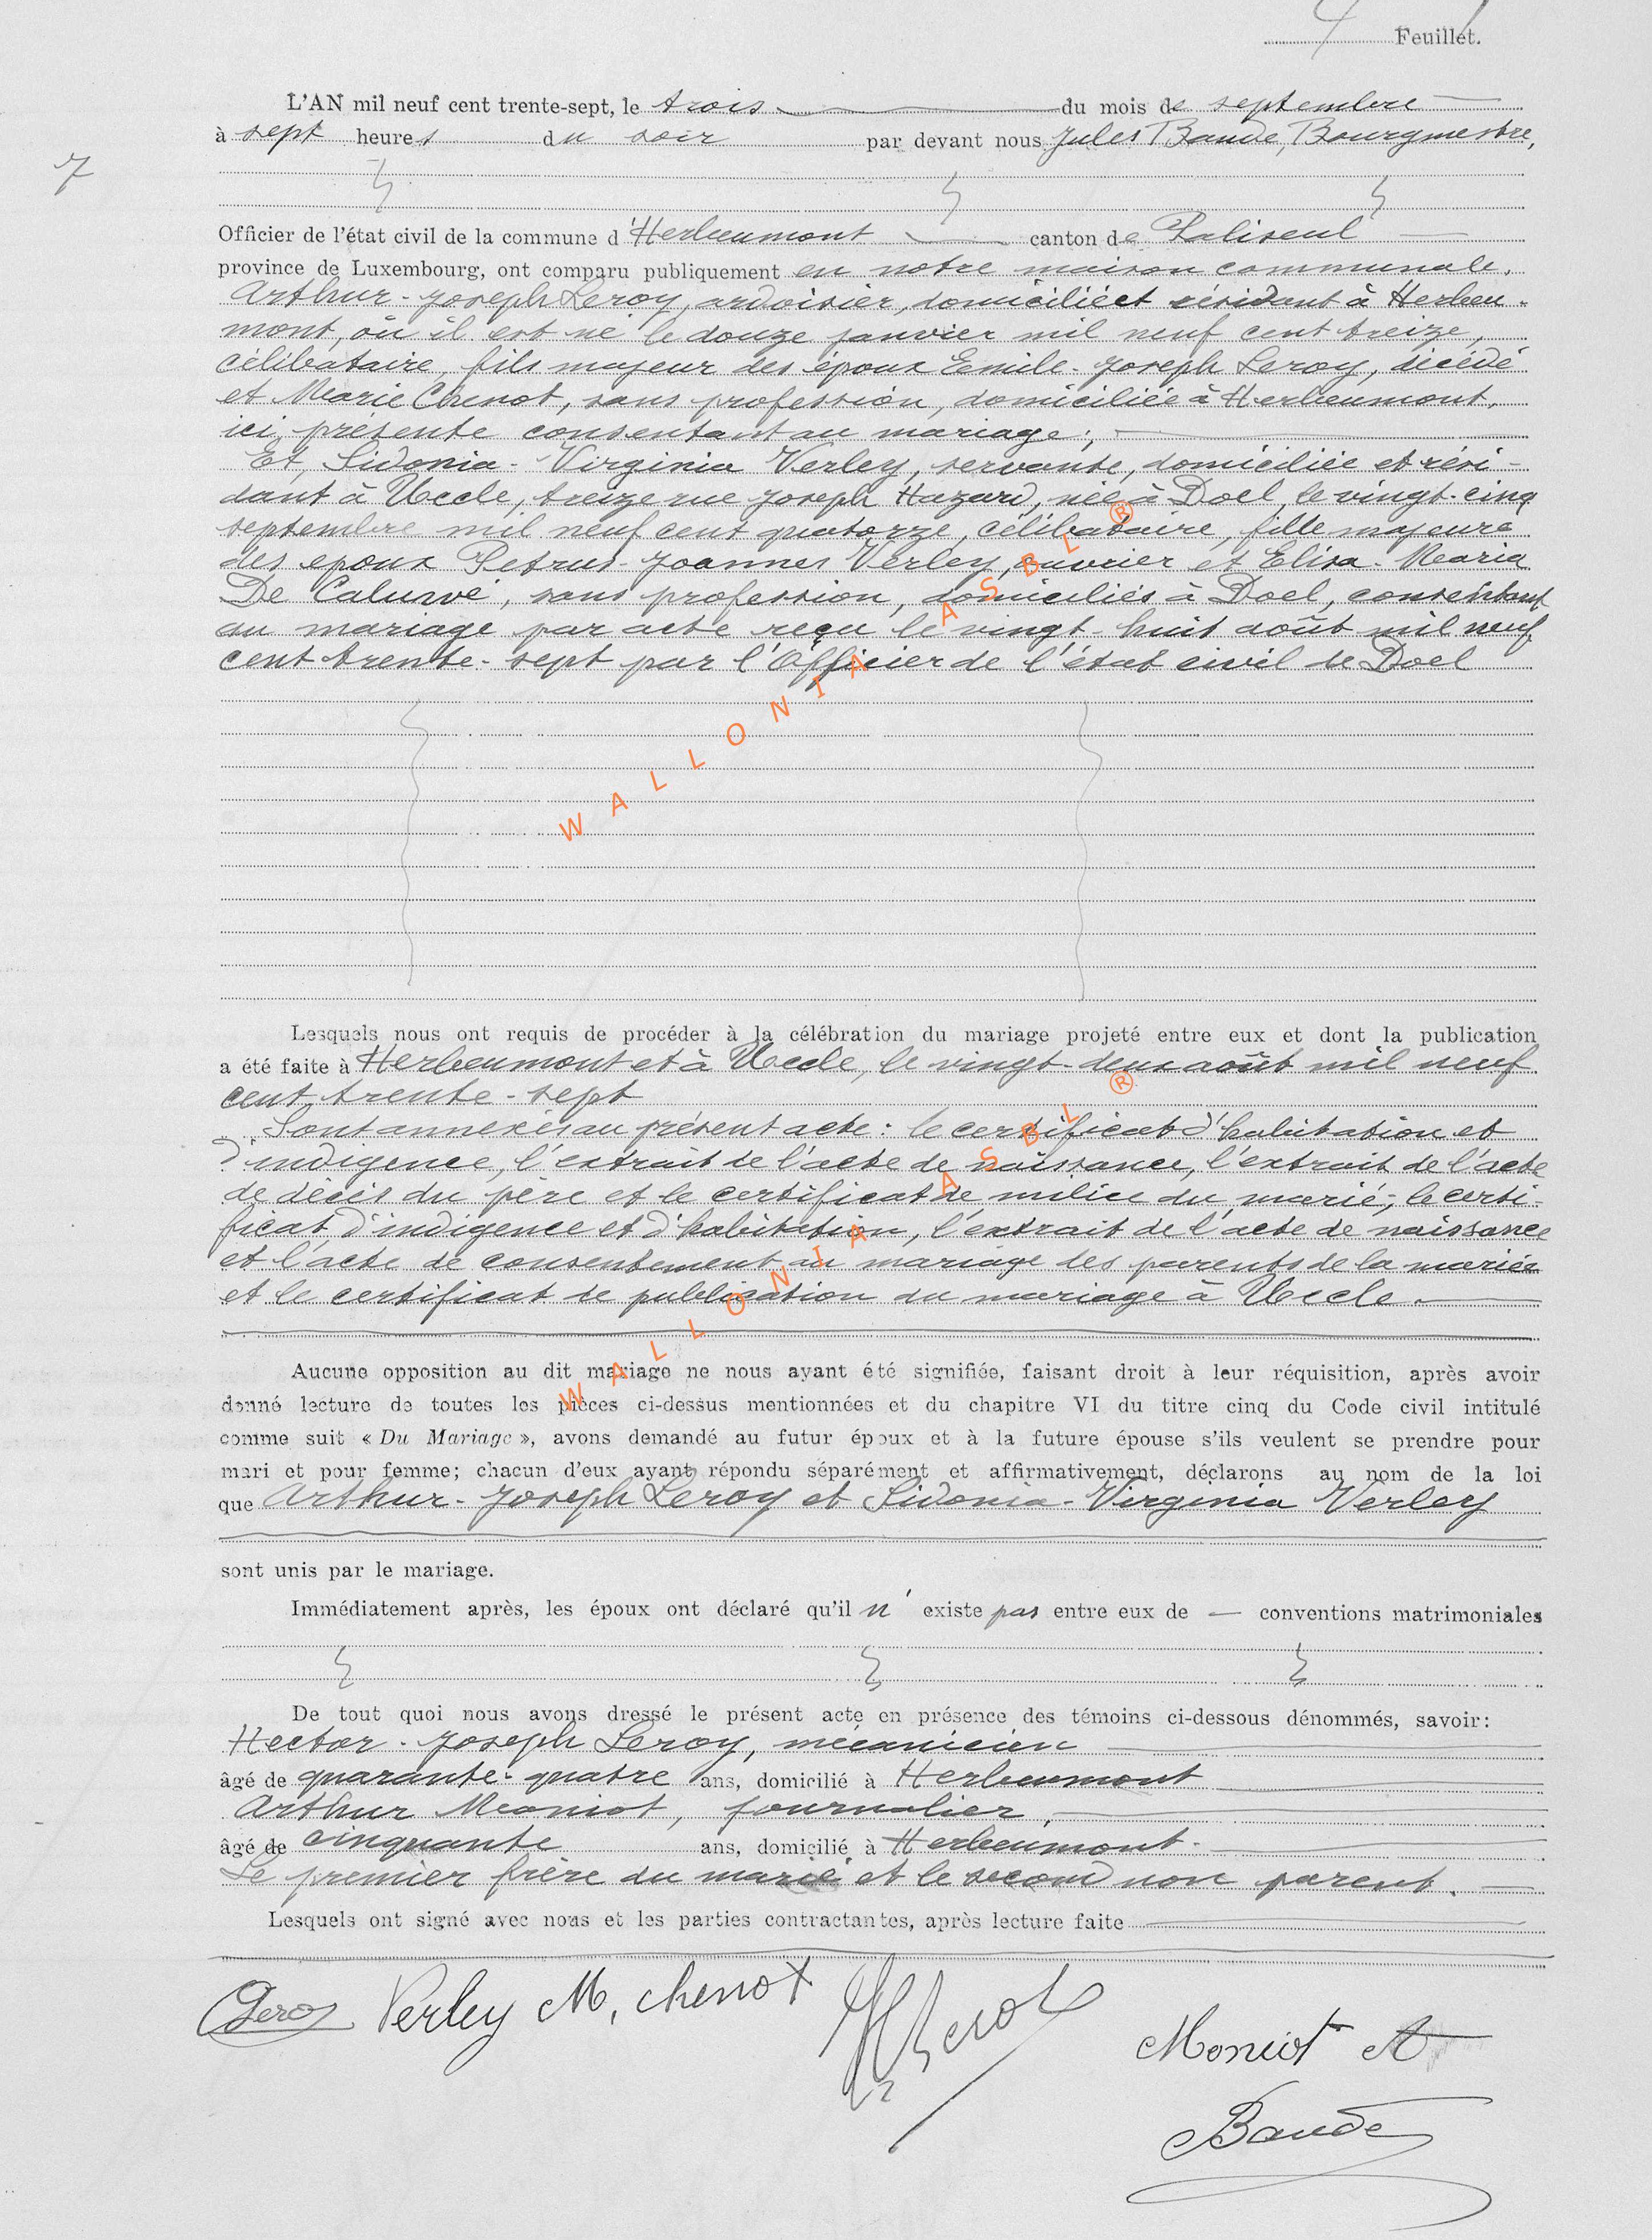 4 Feuillet.
L'AN mil neuf cent trente-sept, le trois du mois de septembre
à sept heures du soir par devant nous Jules Baude, Bourgmestre,
7
Officier de l'état civil de la commune d'Herbeumont canton de Paliseul
province de Luxembourg, ont comparu publiquement en notre maison communale,
Arthur-Joseph Leroy, ardoisier, domicilié et résidant à Herbeu-
mont, où il est né le douze janvier mil neuf cent treize,
célibataire, fils majeur des époux Emile-Joseph Leroy, décédé
et Marie Chenot, sans profession, domiciliée à Herbeumont,
ici présente consentant au mariage;
Et, Sidonia-Virginia Verley, servante, domiciliée et rési-
dant à Uccle, treize rue Joseph Hazard, née à Doel, le vingt-cinq
septembre mil neuf cent quatorze, célibataire, fille majeure
des époux Petrus-Joannes Verley, ouvrier et Elisa-Maria
De Caluwé, sans profession, domiciliés à Doel, consentant
au mariage par acte reçu le vingt-huit août mil neuf
cent trente-sept par l'Officier de l'état civil de Doel
WALLONIA ASBL ®
Lesquels nous ont requis de procéder à la célébration du mariage projeté entre eux et dont la publication
a été faite à Herbeumont et à Uccle, le vingt-deux août mil neuf
cent trente-sept
Sont annexés au présent acte: le certificat d'habitation et
d'indigence, l'extrait de l'acte de naissance, l'extrait de l'acte
de décès du père et le certificat de milice du marié; le certi-
ficat d'indigence et d'habitation, l'extrait de l'acte de naissance
et l'acte de consentement au mariage des parents de la mariée
et le certificat de publication du mariage à Uccle.
WALLONIA ASBL ®
Aucune opposition au dit mariage ne nous ayant été signifiée, faisant droit à leur réquisition, après avoir
donné lecture de toutes les pièces ci-dessus mentionnées et du chapitre VI du titre cinq du Code civil intitulé
comme suit « Du Mariage », avons demandé au futur époux et à la future épouse s'ils veulent se prendre pour
mari et pour femme; chacun d'eux ayant répondu séparément et affirmativement, déclarons au nom de la loi
que Arthur-Joseph Leroy et Sidonia-Virginia Verley
sont unis par le mariage.
Immédiatement après, les époux ont déclaré qu'il n'existe pas entre eux de — conventions matrimoniales
De tout quoi nous avons dressé le présent acte en présence des témoins ci-dessous dénommés, savoir:
Hector-Joseph Leroy, mécanicien
âgé de quarante-quatre ans, domicilié à Herbeumont
Arthur Moniot, journalier,
âgé de cinquante ans, domicilié à Herbeumont.
Le premier frère du marié et le second non parent.
Lesquels ont signé avec nous et les parties contractantes, après lecture faite
Leroy Verley M. chenot H Leroy
Moniot A
Baude